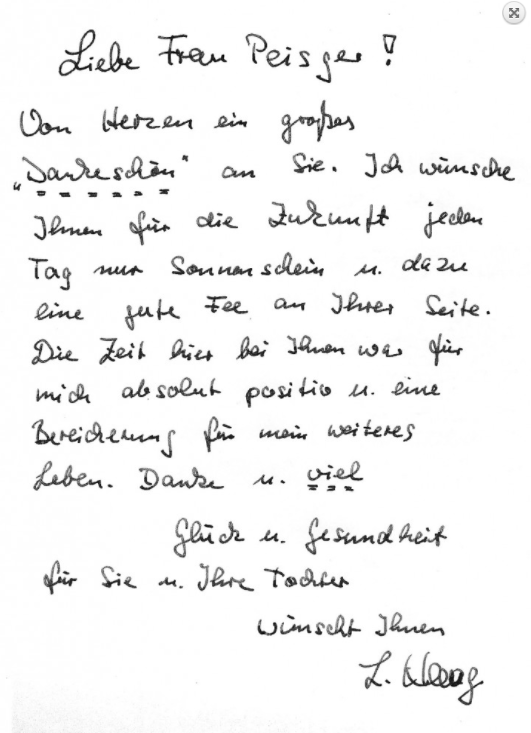 Liebe Frau Peisger!
Von Herzen ein großes
„Dankeschön“ an Sie. Ich wünsche
Ihnen für die Zukunft jeden
Tag nur Sonnenschein u. dazu
eine gute Fee an Ihrer Seite.
Die Zeit hier bei Ihnen war für
mich absolut positiv u. eine
Bereicherung für mein weiteres
Leben. Danke u. viel
Glück u. Gesundheit
für Sie u. Ihre Tochter
wünscht Ihnen
L.